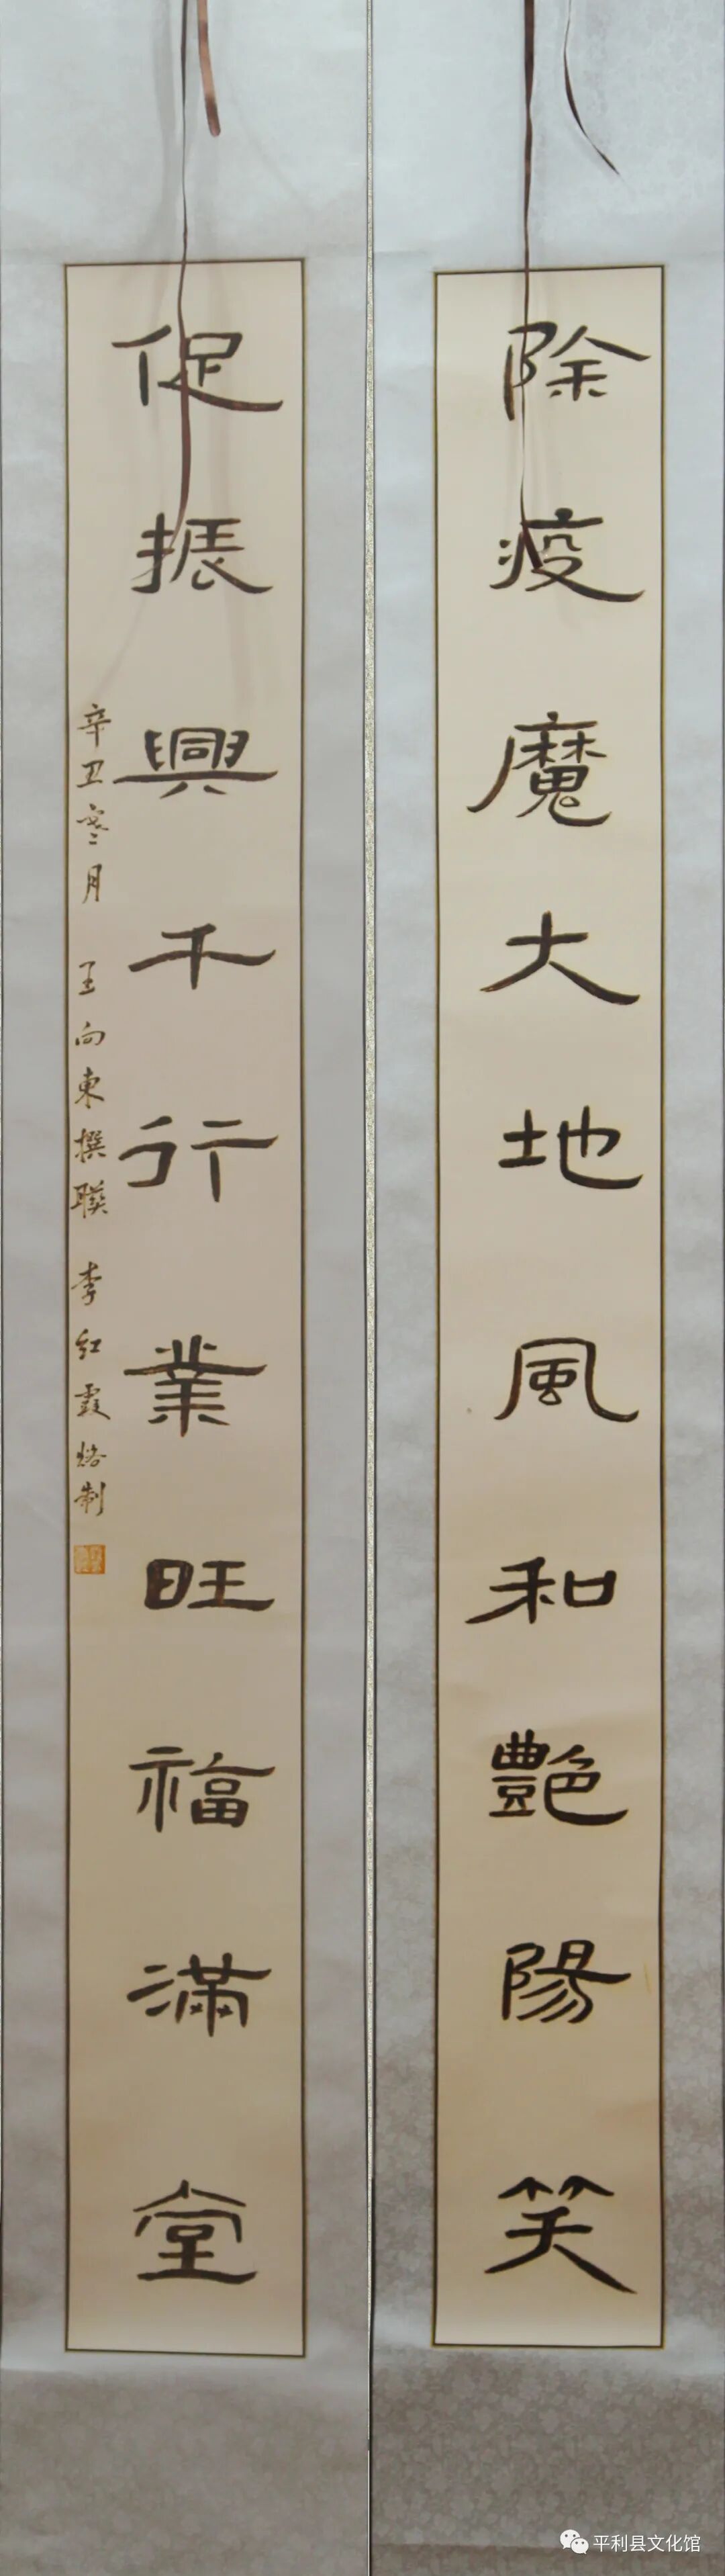 除疫魔大地風和艷陽笑
促振興千行業旺福滿堂
辛丑寒月 王向東撰聯 李紅霞烙制
平利县文化馆